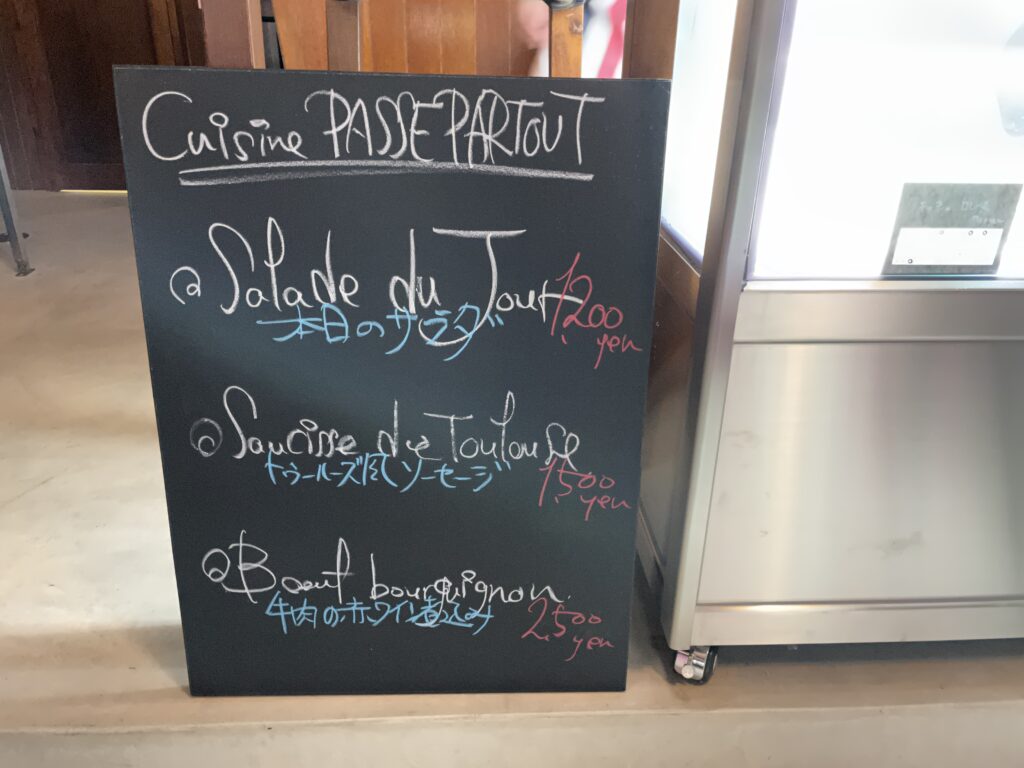 Cuisine PASSEPARTOUT
Salade du Jour
本日のサラダ
1,200 yen
Saucisse de Toulouse
トゥールーズ風ソーセージ
1,500 yen
Boeuf bourguignon
牛肉の赤ワイン煮込み
2,500 yen